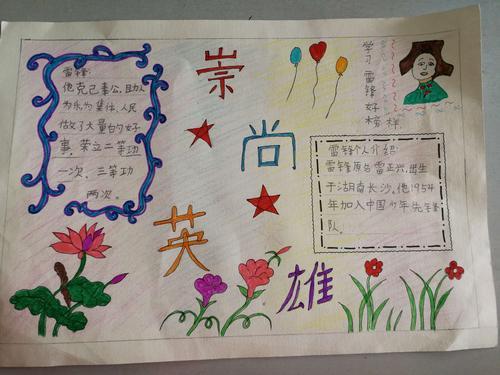 崇
尚
英
雄
雷锋:
他克己奉公,助人
为乐,为集体,人民
做了大量的好
事,荣立二等功
一次、三等功
两次。
学习雷锋好榜样
雷锋个人介绍:
雷锋原名雷正兴,出生
于湖南长沙。他1954
年加入中国少年先锋
队。